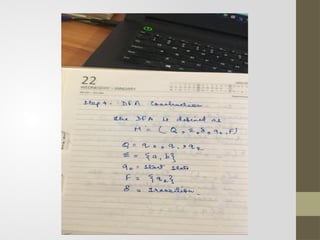 22
WEDNESDAY - JANUARY
Step 4: DFA Construction
The DFA is defined as
M = ( Q, Σ, δ, q₀, F)
Q = q₀, q₁, q₂
Σ = {a, b}
q₀ = Start State
F = {q₂}
δ = Transition.